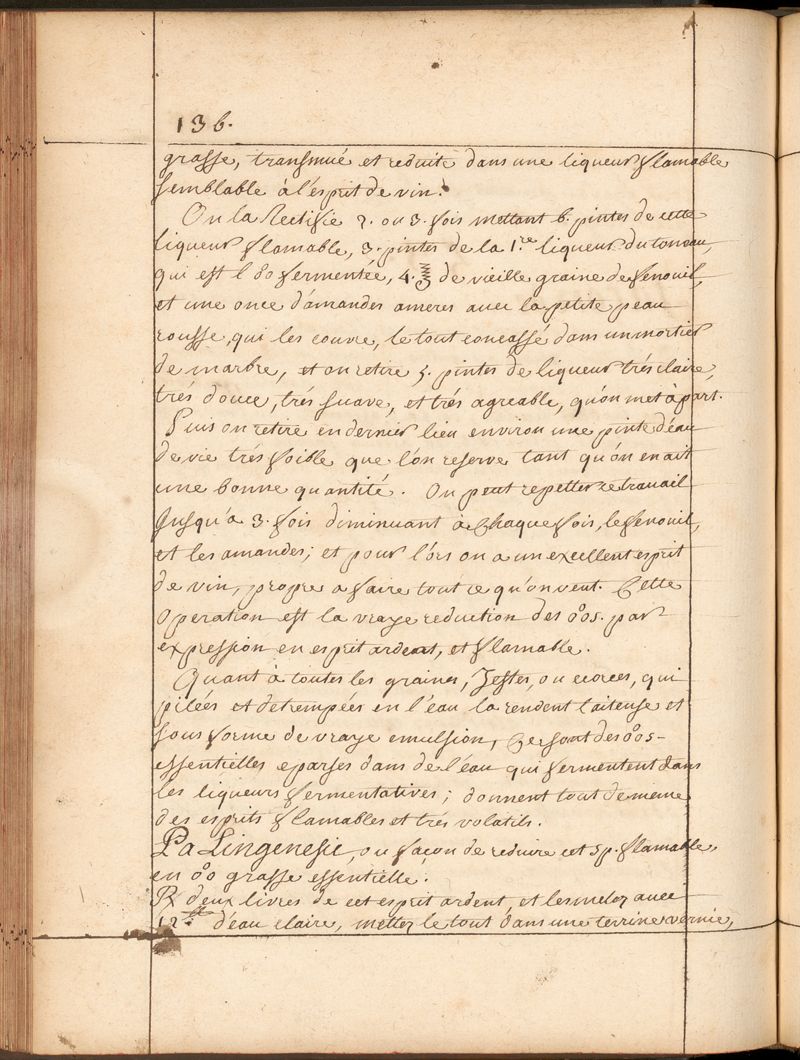 136.
grasse, transmué et reduite dans une liqueur flamable
semblable à l'ésprit de vin.
On la Rectifie 2. ou 3. fois mettant 6. pintes de cette
liqueur flamable, 3. pintes de la 1.re liqueur du toneau,
qui est l'o°o fermentée, 4.℥ de vieille graine de fenouil,
et une once d'amandes ameres avec la petite peau
rousse, qui les couvre, le tout concassé dans un mortier
de marbre, et on retire 5. pintes de liqueur trés claire,
trés douce, trés suave, et trés agreable, qu'on met à part.
Puis on retire en dernier lieu environ une pinte d'éau
de vie trés foible que l'ón reserve tant qu'ón en ait
une bonne quantité. On peut repetter ce travail
Jusqu'a 3. fois diminuant à chaque fois, le fenouil,
et les amandes; et pour l'órs on a un excellent esprit
de vin, propre a faire tout ce qu'on veut. Cette
Operation est la vraye reduction des o°os. par
expression en esprit ardent, et flamable.
Quant à toutes les graines, Zestes, ou ecorces, qui
pilées et detrempées en l'éau la rendent laiteuse et
sous forme de vraye emulsion, Ce sont des o°os-
essentielles eparses dans de l'éau qui fermentent dans
les liqueurs fermentatives; donnent tout de meme
des esprits flamables et trés volatils.
Palingenesie, ou façon de reduire cet sp. flamable
en o°o grasse essentielle.
℞ deux livres de cet esprit ardent, et les melez avec
12.tt d'éau claire, mettez le tout dans une terrine vernie,